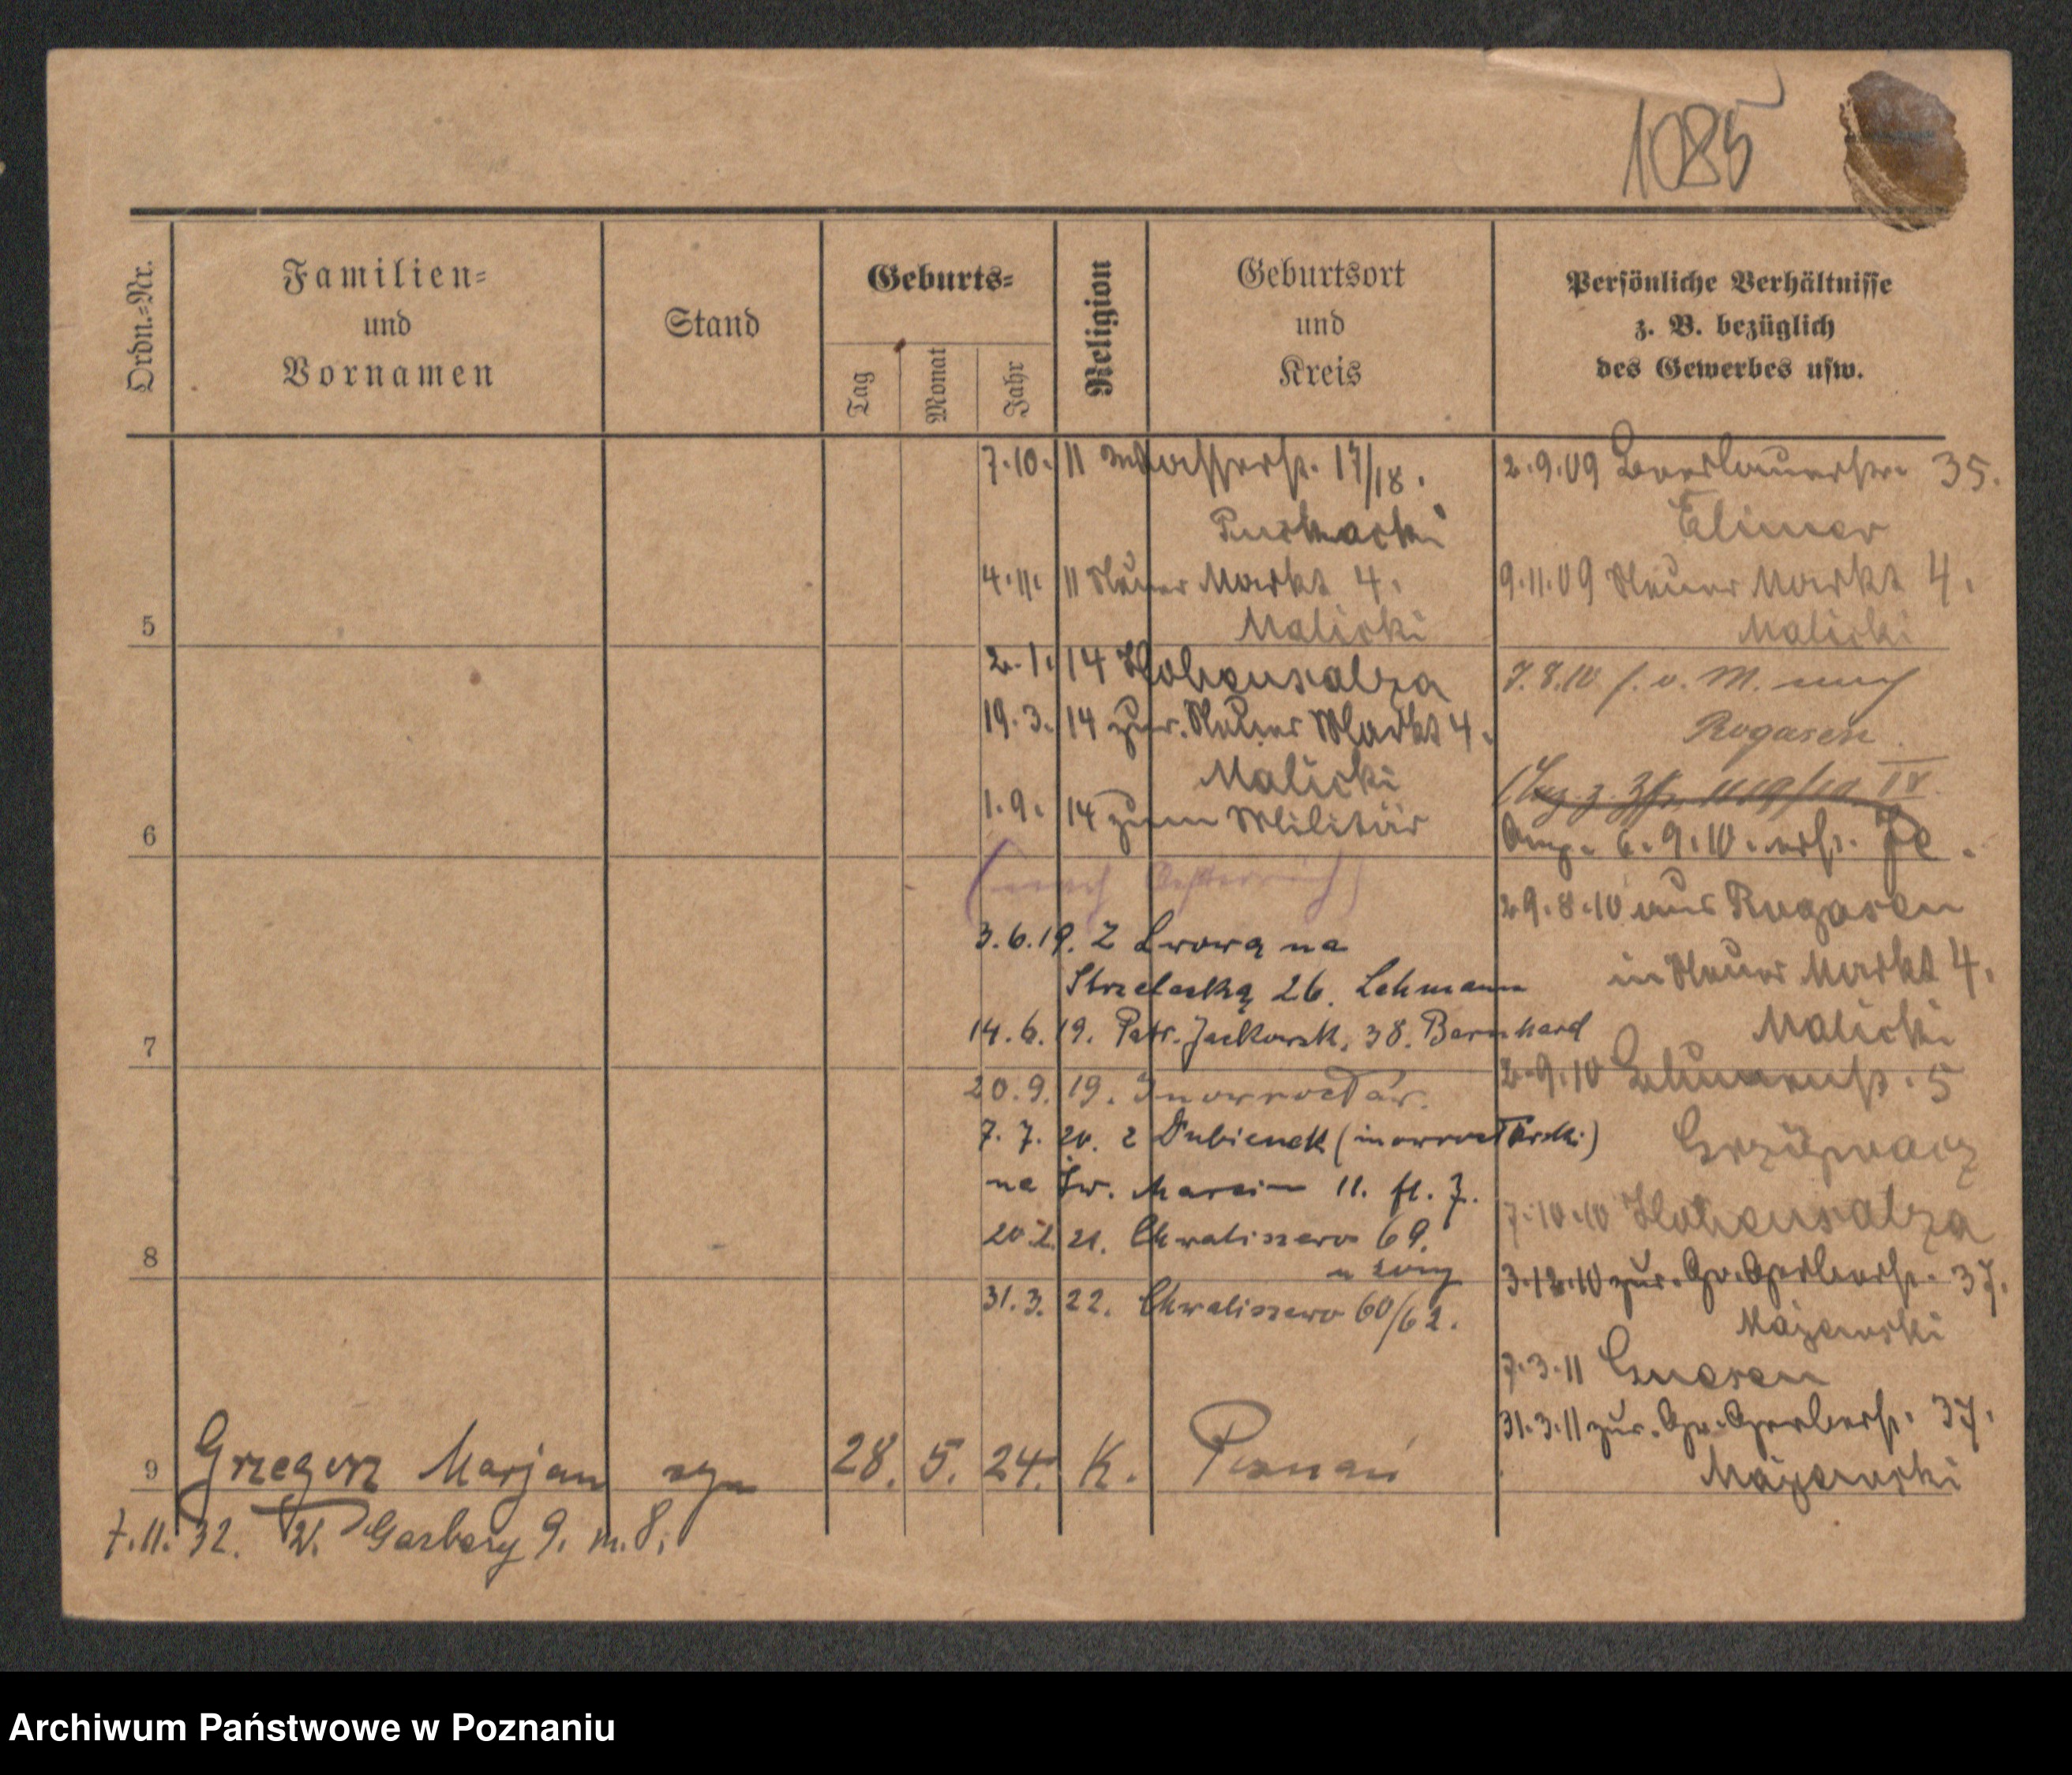 1085
Ordn.-Nr.
Familien=
und
Vornamen
Stand
Geburts=
Tag
Monat
Jahr
Religion
Geburtsort
und
Kreis
Persönliche Verhältnisse
z. B. bezüglich
des Gewerbes usw.
7.10. 11 17/18.
4.11. 11 Neuer Markt 4.
Malicki
2.1. 14 Hohensalza
19.3. 14 zur. Neuer Markt 4.
Malicki
1.9. 14 zum Militär
(nach Oesterreich)
3.6.19. Z Lwowa na
Strzelecką 26. Lehmann
14.6.19. Patr. Jackowsk. 38. Bernhard
20.9.19. Inowrocław.
7.7.20. z Dubienek (inowrocławski)
na Św. Marcin 11. fl. 7.
20.2.21. Chwaliszewo 69.
u żony
31.3.22. Chwaliszewo 60/62.
2.9.09 35.
9.11.09 Neuer Markt 4.
Malicki
7.8.10 f. v. M. nach
Rogasen
Ang. 6.9.10.
29.8.10 aus Rogasen
in Neuer Markt 4.
Malicki
2.9.10 5
7.10.10 Hohensalza
3.12.10 zur. Gr. Gerberstr. 37.
Majewski
7.3.11 Gnesen
31.3.11 zur. Gr. Gerberstr. 37.
Majewski
5
6
7
8
9 Grzegorz Marjan syn 28. 5. 24. K. Poznań
7.11.32. W. Garbary 9. m. 8.
Archiwum Państwowe w Poznaniu